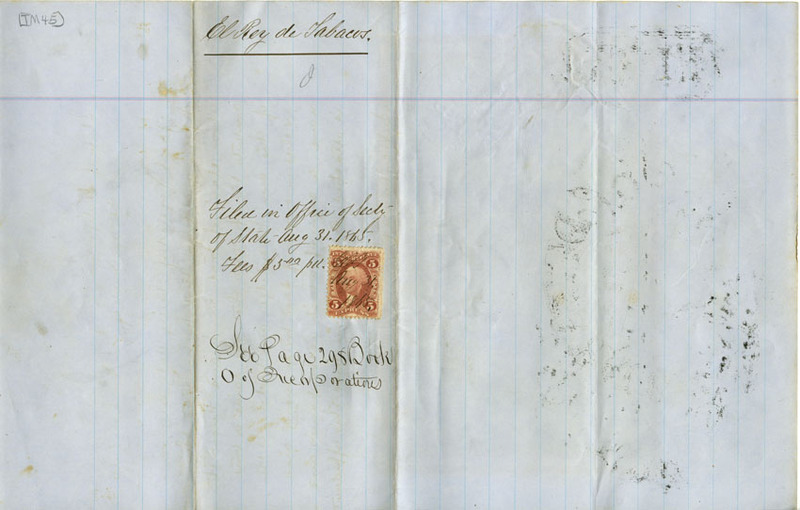 (TM45)
El Rey de Tabacos.
Filed in Office of Secty
of State Aug 31. 1865.
Fees $5.00 pd.
5 5
5 5
See Page 298 Book
O of Incorporations